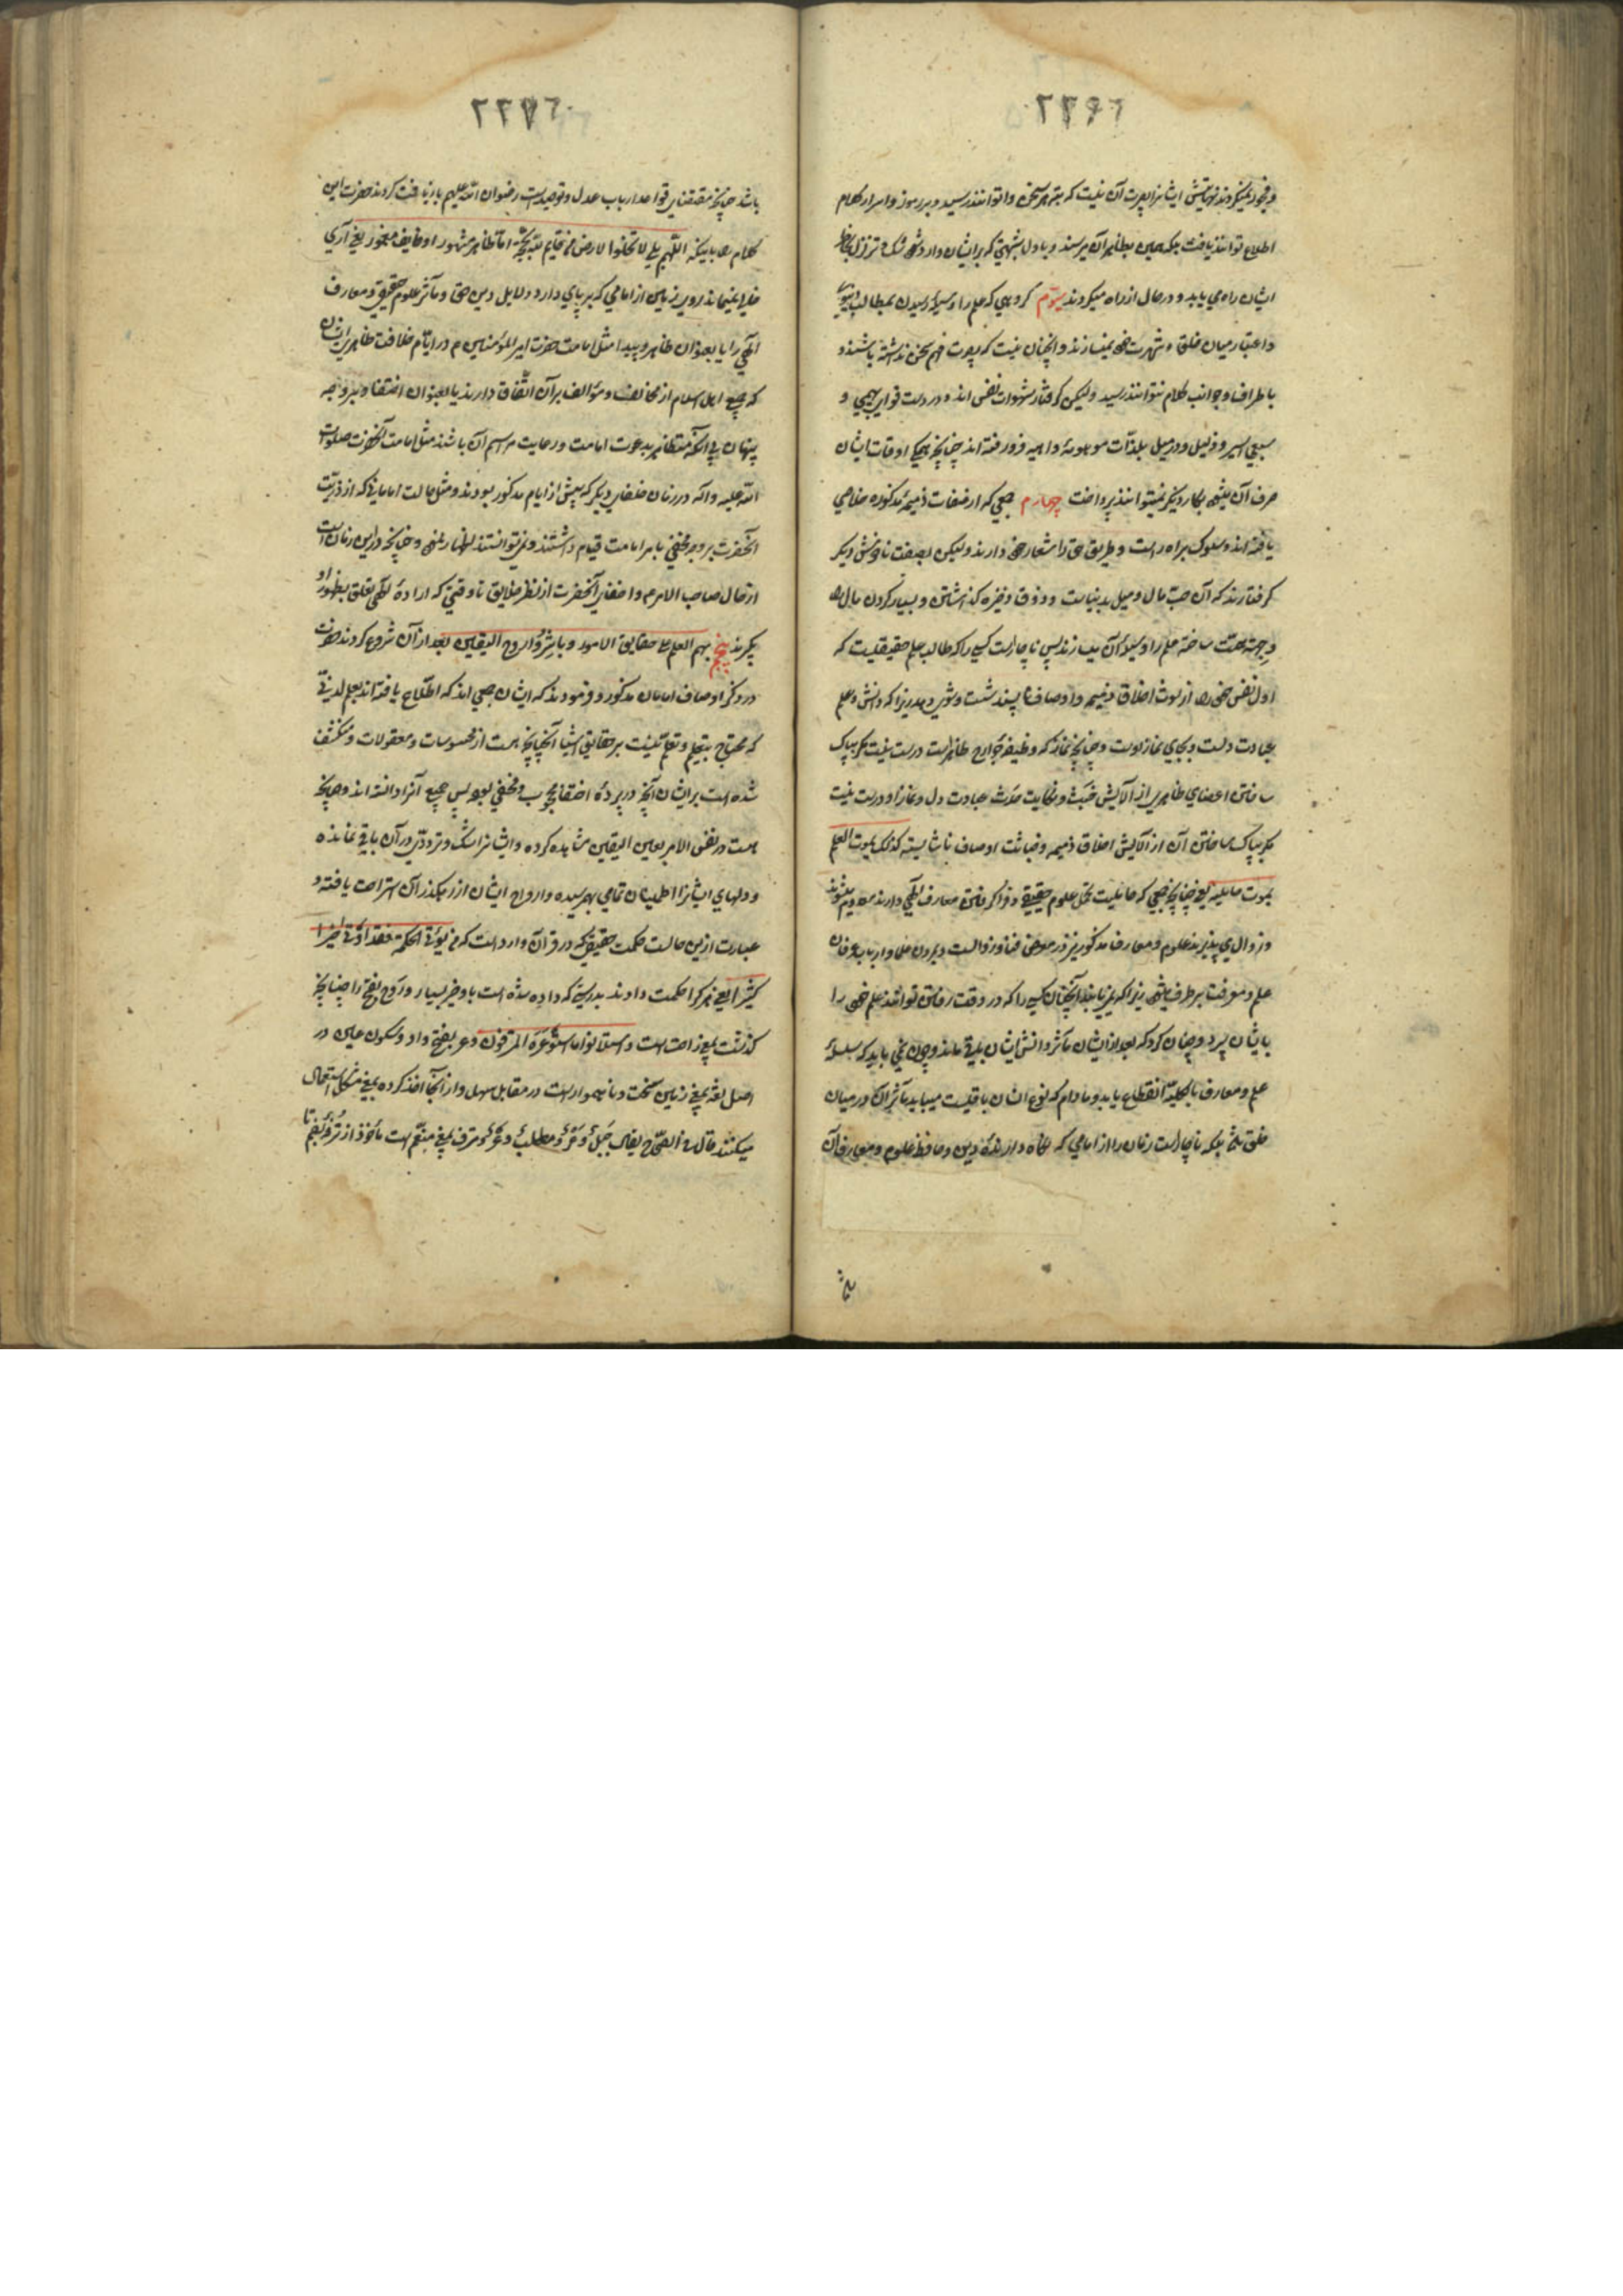 و فجور نمیکردند نهایتش ایشانرا بصیرت آن نیست که بته هر سخن وا توانند رسید و بر رموز و اسرار کلام
اطلاع توانند یافت بلکه همین بظاهر آن میرسند و باول شبهتی که برایشان وارد شود شک و تزلزل بخاطر
ایشان راه می یابد و در حال از راه میگردند سیّوم گروهی که علم را وسیلهٔ رسیدن بمطالب دنیوی
و اعتبار میان خلق و شهرت خود میسازند و اینچنان نیست که بصیرت فهم سخن نداشته باشند و
باطراف و جوانب کلام نتوانند رسید ولیکن گرفتار شهوات نفس اند و در دست قوای بهیمی و
سبعی اسیر و ذلیل و در میل بلذّات موهومهٔ واهیه فرو رفته اند چنانچه همگی اوقات ایشان
صرف آن میشود بکار دیگر نمیتوانند پرداخت چهارم جمعی که از صفات ذمیمهٔ مذکوره خلاصی
یافته اند و سلوک براه راست و طریق حق را شعار خود دارند ولیکن بصفت ناخوش دیگر
گرفتارند که آن حبّ مال و میل بدنیاست و ذوق ذخیره گذاشتن و بسیار کردن مال را
وجهه همّت ساخته علم را وسیلهٔ آن میسازند پس ناچارست کسی را که طالب علم حقیقیست که
اول نفس خود را از لوث اخلاق ذمیمه و اوصاف ناپسند شست و شوی دهد زیرا که دانش و علم
عبادت دلست و بجای نماز اوست و چنانچه نماز که وظیفهٔ جوارح ظاهرست درست نیست مگر بپاک
ساختن اعضای ظاهری از آلایش خبث و نکایت حدث عبادت دل و نماز او درست نیست
مگر بپاک ساختن آن از آلایش اخلاق ذمیمه و خباثت اوصاف ناشایسته کذلک یموت العلم
بموت حاملیه یعنی چنانچه جمعی که قابلیت تحمل علوم حقیقی و فرا گرفتن معارف الهی دارند معدوم میشوند
و زوال می پذیرند علوم و معارف مذکور نیز در معرض فنا و زوالست و بمردن علما و ارباب عرفان
علم و معرفت برطرف میشود زیرا که نمی یابند آنچنان کسی را که در وقت رفتن توانند علم خود را
بایشان سپرد و چنان کرد که بعد از ایشان مآثر دانش ایشان باقی ماند و چون نمی باید که سلسلهٔ
علم و معارف بالکلیه انقطاع یابد و مادام که نوع انسان باقیست میباید مآثر آن در میان
خلق باشد بلکه ناچارست زمان را از امامی که نگاه دارندهٔ دین و حافظ علوم و معارف آن
باشد چنانچه مقتضای قواعد ارباب عدل و توحیدست رضوان الله علیهم بازیافت کردند حضرت این
کلام را باینکه اللّهم بلی لا تخلوا الارض من قائم لله بحجّة امّا ظاهر مشهور او خایف مغمور یعنی آری
خالی نمیماند روی زمین از امامی که برپای دارد دلایل دین حق و مآثر علوم حقیقی و معارف
الهی را یا بعنوان ظاهر و پیدا مثل امامت حضرت امیر المؤمنین ع م در ایّام خلافت ظاهری ایشان
که جمیع اهل اسلام از مخالف و مؤالف برآن اتّفاق دارند یا بعنوان اختفا و بر وجه
پنهان بی آنکه متظاهر بدعوت امامت و رعایت مراسم آن باشند مثل امامت آنحضرت صلوات
الله علیه و آله در زمان خلفای دیگر که پیش از ایام مذکور بودند و مثل حالت امامانی که از ذریّت
آنحضرت بر وجه مخفی بامر امامت قیام داشتند و نمیتوانستند اظهار نمود و چنانچه در این زمان است
از حال صاحب الامر ع م و اختفای آنحضرت از نظر خلایق تا وقتی که ارادهٔ الهی تعلق بظهور او
پگیرد هجم بهم العلم علی حقایق الامور و باشروا روح الیقین بعد از آن شروع کردند حضرت
در ذکر اوصاف امامان مذکور و فرمودند که ایشان جمعی اند که اطّلاع یافته اند بعلم لدنّی
که محتاج بتعلیم و تعلّم نیست بر حقایق اشیا آنچنانچه هست از محسوسات و معقولات و منکشف
شده است بر ایشان آنچه در پردهٔ اختفا محجوب و مخفی بود پس جمیع آنرا دانسته اند و چنانچه
هست در نفس الامر بعین الیقین مشاهده کرده و ایشانرا شک و تردّدی در آن باقی نمانده
و دلهای ایشانرا اطمینان تمامی بهم رسیده و ارواح ایشان از رهگذر آن استراحت یافته و
عبارت ازین حالت حکمت حقیقی که در قرآن وارد است که من یؤتی الحکمة فقد اوتی خیرا
کثیرا یعنی هر کرا حکمت دادند بدرستی که داده شده است باو خیر بسیار و رَوح بفتح را چنانچه
گذشت بمعنی راحت است و استلانوا ما استوعره المترفون وعر بفتح واو و سکون عین در
اصل لغة بمعنی زمین سخت و ناهموار است در مقابل سهل و از آنجا اخذ کرده بمعنی مشکل استعمال
میکنند قال فی الصّحاح یقال جَبَلٌ وَعْرٌ و مطلبٌ وَعْرٌ و مترف بمعنی منعّم است مأخوذ از تُرفه بضم تا